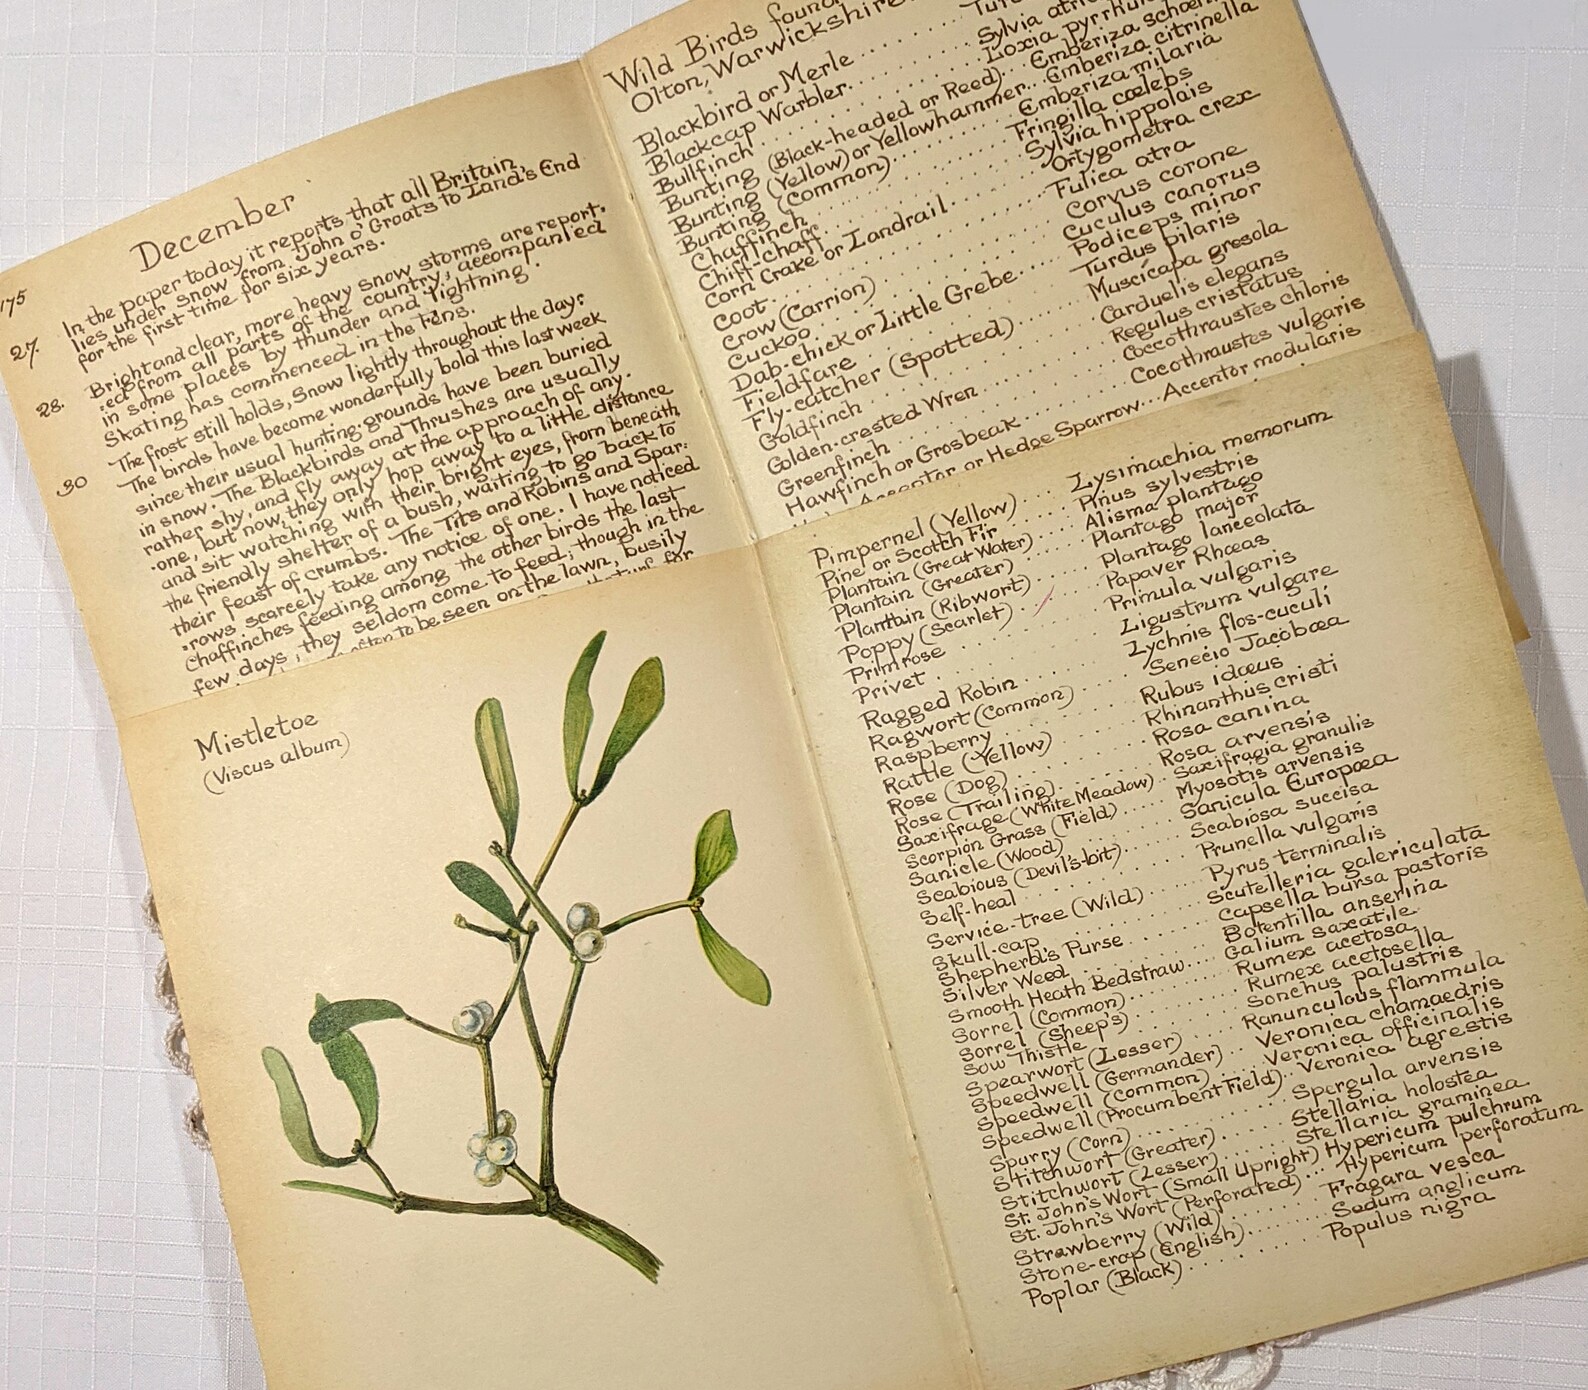 175
December
In the paper today it reports that all Britain
lies under snow from John o' Groats to Land's End
for the first time for six years.
27.
Bright and clear, more heavy snow storms are report:
:ed from all parts of the country; accompanied
in some places by thunder and lightning.
28.
Skating has commenced in the Fens.
The frost still holds, Snow lightly throughout the day:
The birds have become wonderfully bold this last week
30
since their usual hunting-grounds have been buried
in snow. The Blackbirds and Thrushes are usually
rather shy, and fly away at the approach of any.
.one, but now, they only hop away to a little distance
and sit watching with their bright eyes, from beneath
the friendly shelter of a bush, waiting to go back to
their feast of crumbs. The Tits and Robins and Spar:
:rows scarcely take any notice of one. I have noticed
Chaffinches feeding among the other birds the last
few days, they seldom come to feed; though in the
often to be seen on the lawn, busily
for
Wild Birds found
Olton, Warwickshire.
Blackbird or Merle
Blackcap Warbler. Sylvia
Bullfinch Loxia
Bunting (Black-headed or Reed) Emberiza
Bunting (Yellow) or Yellowhammer Emberiza citrinella
Bunting (Common) Emberiza milaria
Chaffinch Fringilla cœlebs
Chiff-chaff Sylvia hippolais
Corn Crake or Landrail Ortygometra crex
Coot Fulica atra
Crow (Carrion) Corvus corone
Cuckoo Cuculus canorus
Dab-chick or Little Grebe Podiceps minor
Fieldfare Turdus pilaris
Fly-catcher (Spotted) Muscicapa gresola
Goldfinch Carduelis elegans
Golden-crested Wren Regulus cristatus
Greenfinch Coccothraustes chloris
Hawfinch or Grosbeak Cocothraustes vulgaris
Accentor or Hedge Sparrow Accentor modularis
Mistletoe
(Viscus album)
Pimpernel (Yellow) Lysimachia memorum
Pine or Scotch Fir Pinus sylvestris
Plantain (Great Water) Alisma plantago
Plantain (Greater) Plantago major
Plantain (Ribwort) Plantago lanceolata
Poppy (Scarlet) Papaver Rhœas
Primrose Primula vulgaris
Privet Ligustrum vulgare
Ragged Robin Lychnis flos-cuculi
Ragwort (Common) Senecio Jacobœa
Raspberry Rubus idœus
Rattle (Yellow) Rhinanthus cristi
Rose (Dog) Rosa canina
Rose (Trailing) Rosa arvensis
Saxifrage (White Meadow) Saxifragia granulis
Scorpion Grass (Field) Myosotis arvensis
Sanicle (Wood) Sanicula Europœa
Scabious (Devil's-bit) Scabiosa succisa
Self-heal Prunella vulgaris
Service-tree (Wild) Pyrus terminalis
Skull-cap Scutelleria galericulata
Shepherd's Purse Capsella bursa pastoris
Silver Weed Botentilla anserina
Smooth Heath Bedstraw Galium saxatile
Sorrel (Common) Rumex acetosa
Sorrel (Sheep's) Rumex acetosella
Sow Thistle Sonchus palustris
Spearwort (Lesser) Ranunculous flammula
Speedwell (Germander) Veronica chamaedris
Speedwell (Common) Veronica officinalis
Speedwell (Procumbent Field) Veronica agrestis
Spurry (Corn) Spergula arvensis
Stitchwort (Greater) Stellaria holostea
Stitchwort (Lesser) Stellaria graminea
St. John's Wort (Small Upright) Hypericum pulchrum
St. John's Wort (Perforated) Hypericum perforatum
Strawberry (Wild) Fragara vesca
Stone-crop (English) Sedum anglicum
Poplar (Black) Populus nigra